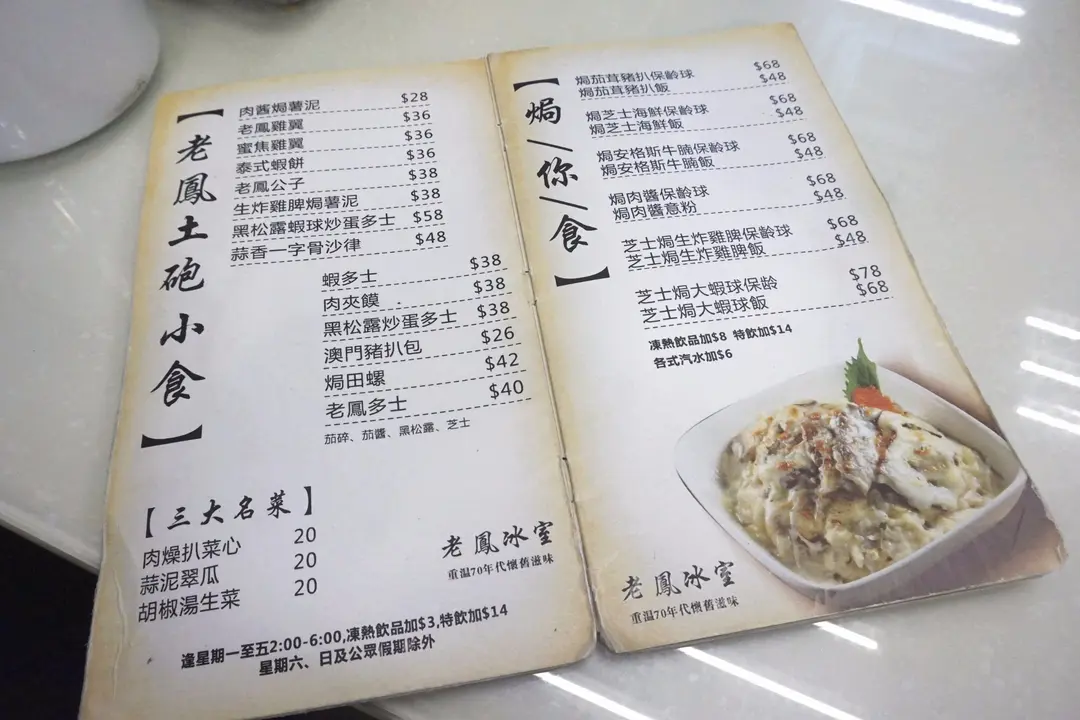 【老鳳土砲小食】
肉酱焗薯泥 $28
老鳳雞翼 $36
蜜焦雞翼 $36
泰式蝦餅 $36
老鳳公子 $38
生炸雞脾焗薯泥 $38
黑松露蝦球炒蛋多士 $58
蒜香一字骨沙律 $48
蝦多士 $38
肉夾饃 $38
黑松露炒蛋多士 $38
澳門豬扒包 $26
焗田螺 $42
老鳳多士 $40
茄碎、茄醬、黑松露、芝士
【三大名菜】
肉燥扒菜心 20
蒜泥翠瓜 20
胡椒湯生菜 20
老鳳冰室
重温70年代懷舊滋味
逢星期一至五2:00-6:00,凍熱飲品加$3,特飲加$14
星期六、日及公眾假期除外
【焗/你/食】
焗茄茸豬扒保齡球 $68
焗茄茸豬扒飯 $48
焗芝士海鮮保齡球 $68
焗芝士海鮮飯 $48
焗安格斯牛腩保齡球 $68
焗安格斯牛腩飯 $48
焗肉醬保齡球 $68
焗肉醬意粉 $48
芝士焗生炸雞脾保齡球 $68
芝士焗生炸雞脾飯 $48
芝士焗大蝦球保龄 $78
芝士焗大蝦球飯 $68
凍熱飲品加$8 特飲加$14
各式汽水加$6
老鳳冰室
重温70年代懷舊滋味